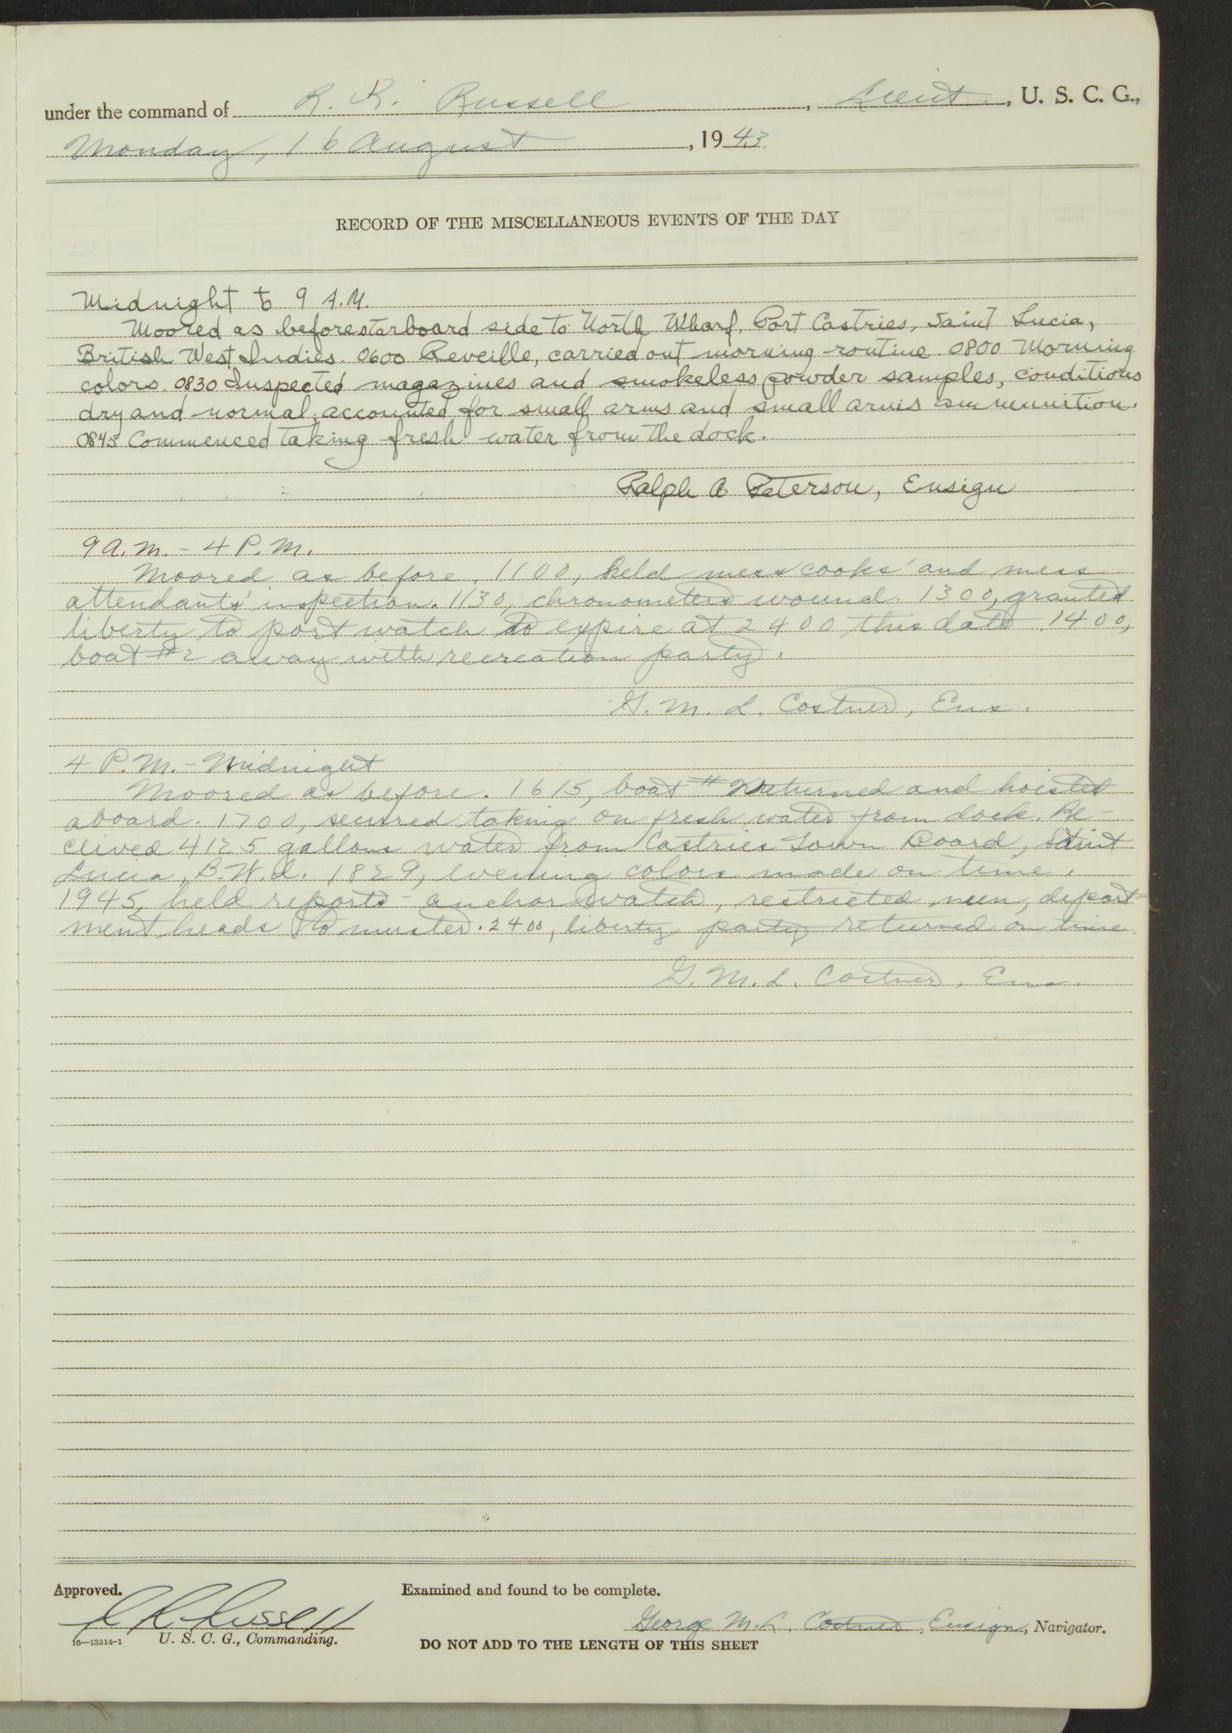 under the command of R. R. Russell, Lieut., U. S. C. G.,
Monday, 16 August, 1943
RECORD OF THE MISCELLANEOUS EVENTS OF THE DAY
Midnight to 9 A.M.
Moored as before starboard side to North Wharf, Port Castries, Saint Lucia,
British West Indies. 0600 Reveille, carried out morning routine. 0800 Morning
colors. 0830 Inspected magazines and smokeless powder samples, conditions
dry and normal; accounted for small arms and small arms ammunition.
0845 Commenced taking fresh water from the dock.
Ralph A Peterson, Ensign
9 A.M. - 4 P.M.
Moored as before. 1100, held mess cooks' and mess
attendants' inspection. 1130, chronometers wound. 1300, granted
liberty to port watch to expire at 2400 this date. 1400,
boat #2 away with recreation party.
G. M. L. Costner, Ens.
4 P.M. - Midnight
Moored as before. 1615, boat #2 returned and hoisted
aboard. 1700, secured taking on fresh water from dock. Re-
ceived 4125 gallons water from Castries Town Board, Saint
Lucia, B.W.I. 1829, evening colors made on time.
1945, held reports - anchor watch, restricted men, depart-
ment heads to muster. 2400, liberty party returned on time.
G. M. L. Costner, Ens.
Approved. Examined and found to be complete.
R R Russell George M. L. Costner, Ensign, Navigator.
16—13314-1 U. S. C. G., Commanding.
DO NOT ADD TO THE LENGTH OF THIS SHEET